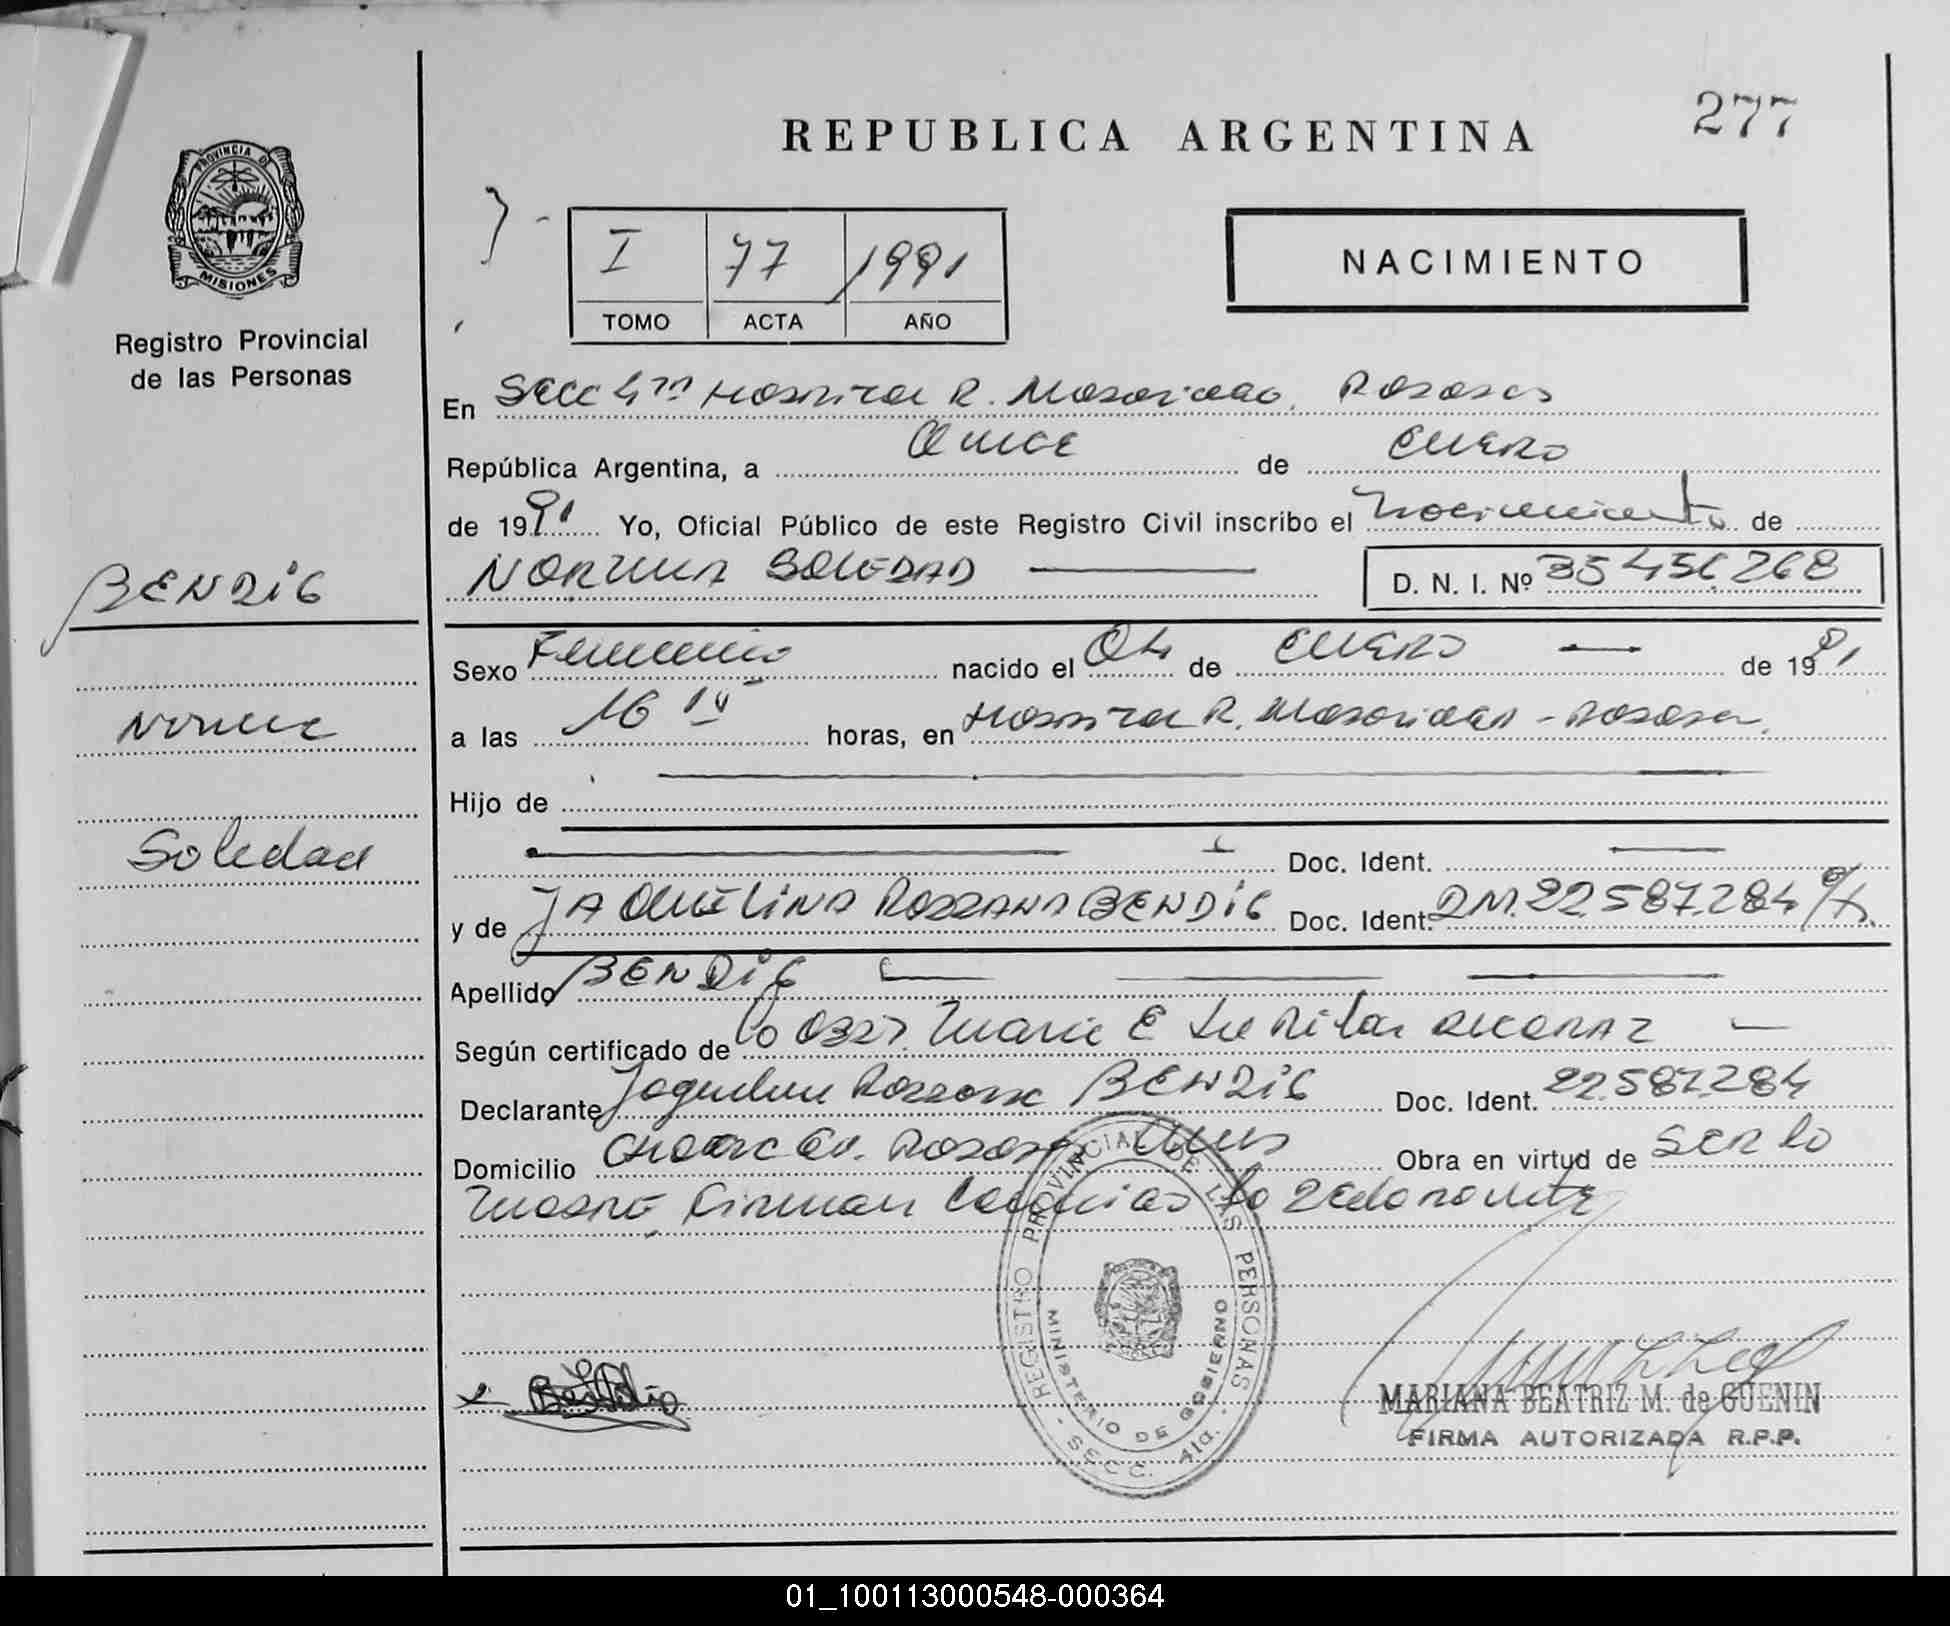 277
REPUBLICA ARGENTINA
PROVINCIA DE MISIONES
I 77 1991
TOMO ACTA AÑO
NACIMIENTO
Registro Provincial
de las Personas
En Secc 4ta Hospital R. Madariaga. Posadas
República Argentina, a Quince de Enero
de 1991 Yo, Oficial Público de este Registro Civil inscribo el Nacimiento de
BENDIG
NORMA SOLEDAD D. N. I. Nº 35456268
Sexo Femenino nacido el 04 de Enero de 1991
Norma
a las 16 15 horas, en Hospital R. Madariaga - Posadas
Hijo de
Soledad
Doc. Ident.
y de JAQUELINA ROSSANA BENDIG Doc. Ident. 22.587.284
Apellido BENDIG
Según certificado de la Obst. Maria E del Pilar
Declarante Jaquelina Rossana BENDIG Doc. Ident. 22.587.284
Domicilio Posadas Mnes Obra en virtud de ser la
madre. Firman la Declarante
REGISTRO PROVINCIAL DE LAS PERSONAS
MINISTERIO DE GOBIERNO
- SECC. 4ta. -
MARIANA BEATRIZ M. de GUENIN
FIRMA AUTORIZADA R.P.P.
01_100113000548-000364